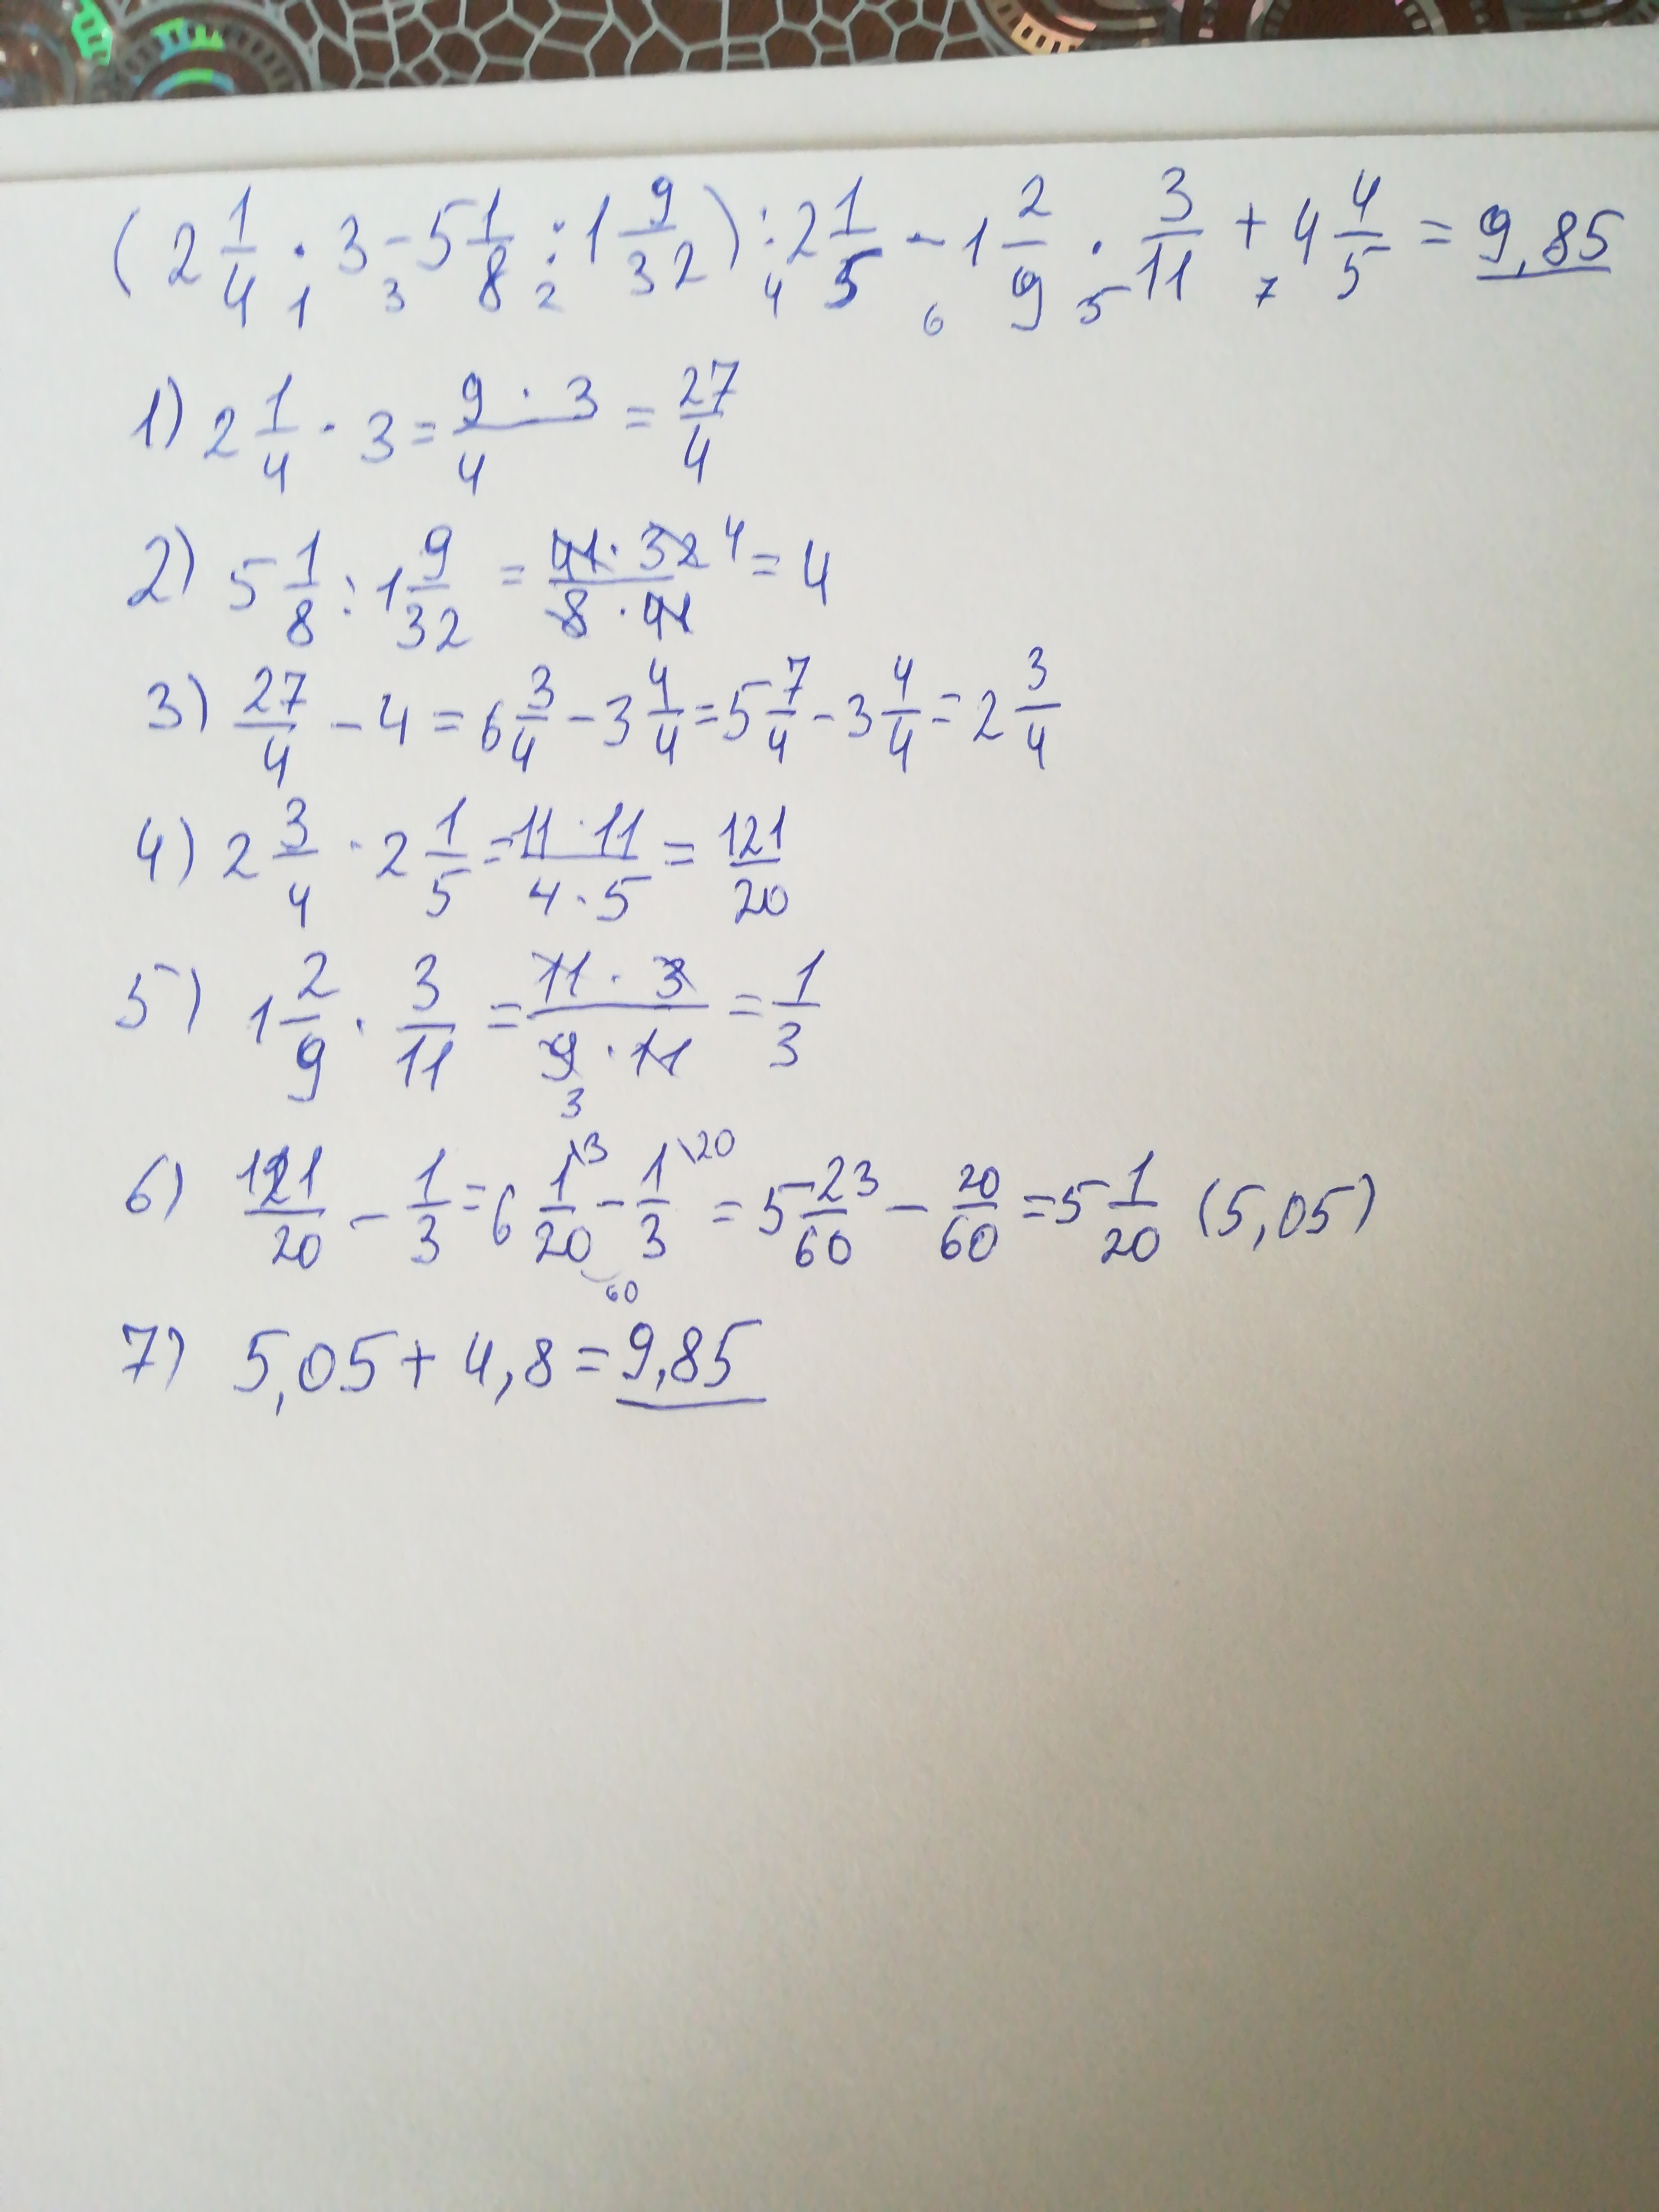 (2 1/4 · 3 - 5 1/8 : 1 9/32) : 2 1/5 - 1 2/9 · 3/11 + 4 4/5 = 9,85
1 3 2 4 6 5 7
1) 2 1/4 · 3 = 9 · 3/4 = 27/4
2) 5 1/8 : 1 9/32 = 41 · 32 4/8 · 41 = 4
3) 27/4 - 4 = 6 3/4 - 3 4/4 = 5 7/4 - 3 4/4 = 2 3/4
4) 2 3/4 · 2 1/5 = 11 · 11/4 · 5 = 121/20
5) 1 2/9 · 3/11 = 11 · 3/9 · 11 = 1/3
3
6) 121/20 - 1/3 = 6 1\3/20 - 1\20/3 = 5 23/60 - 20/60 = 5 1/20 (5,05)
60
7) 5,05 + 4,8 = 9,85